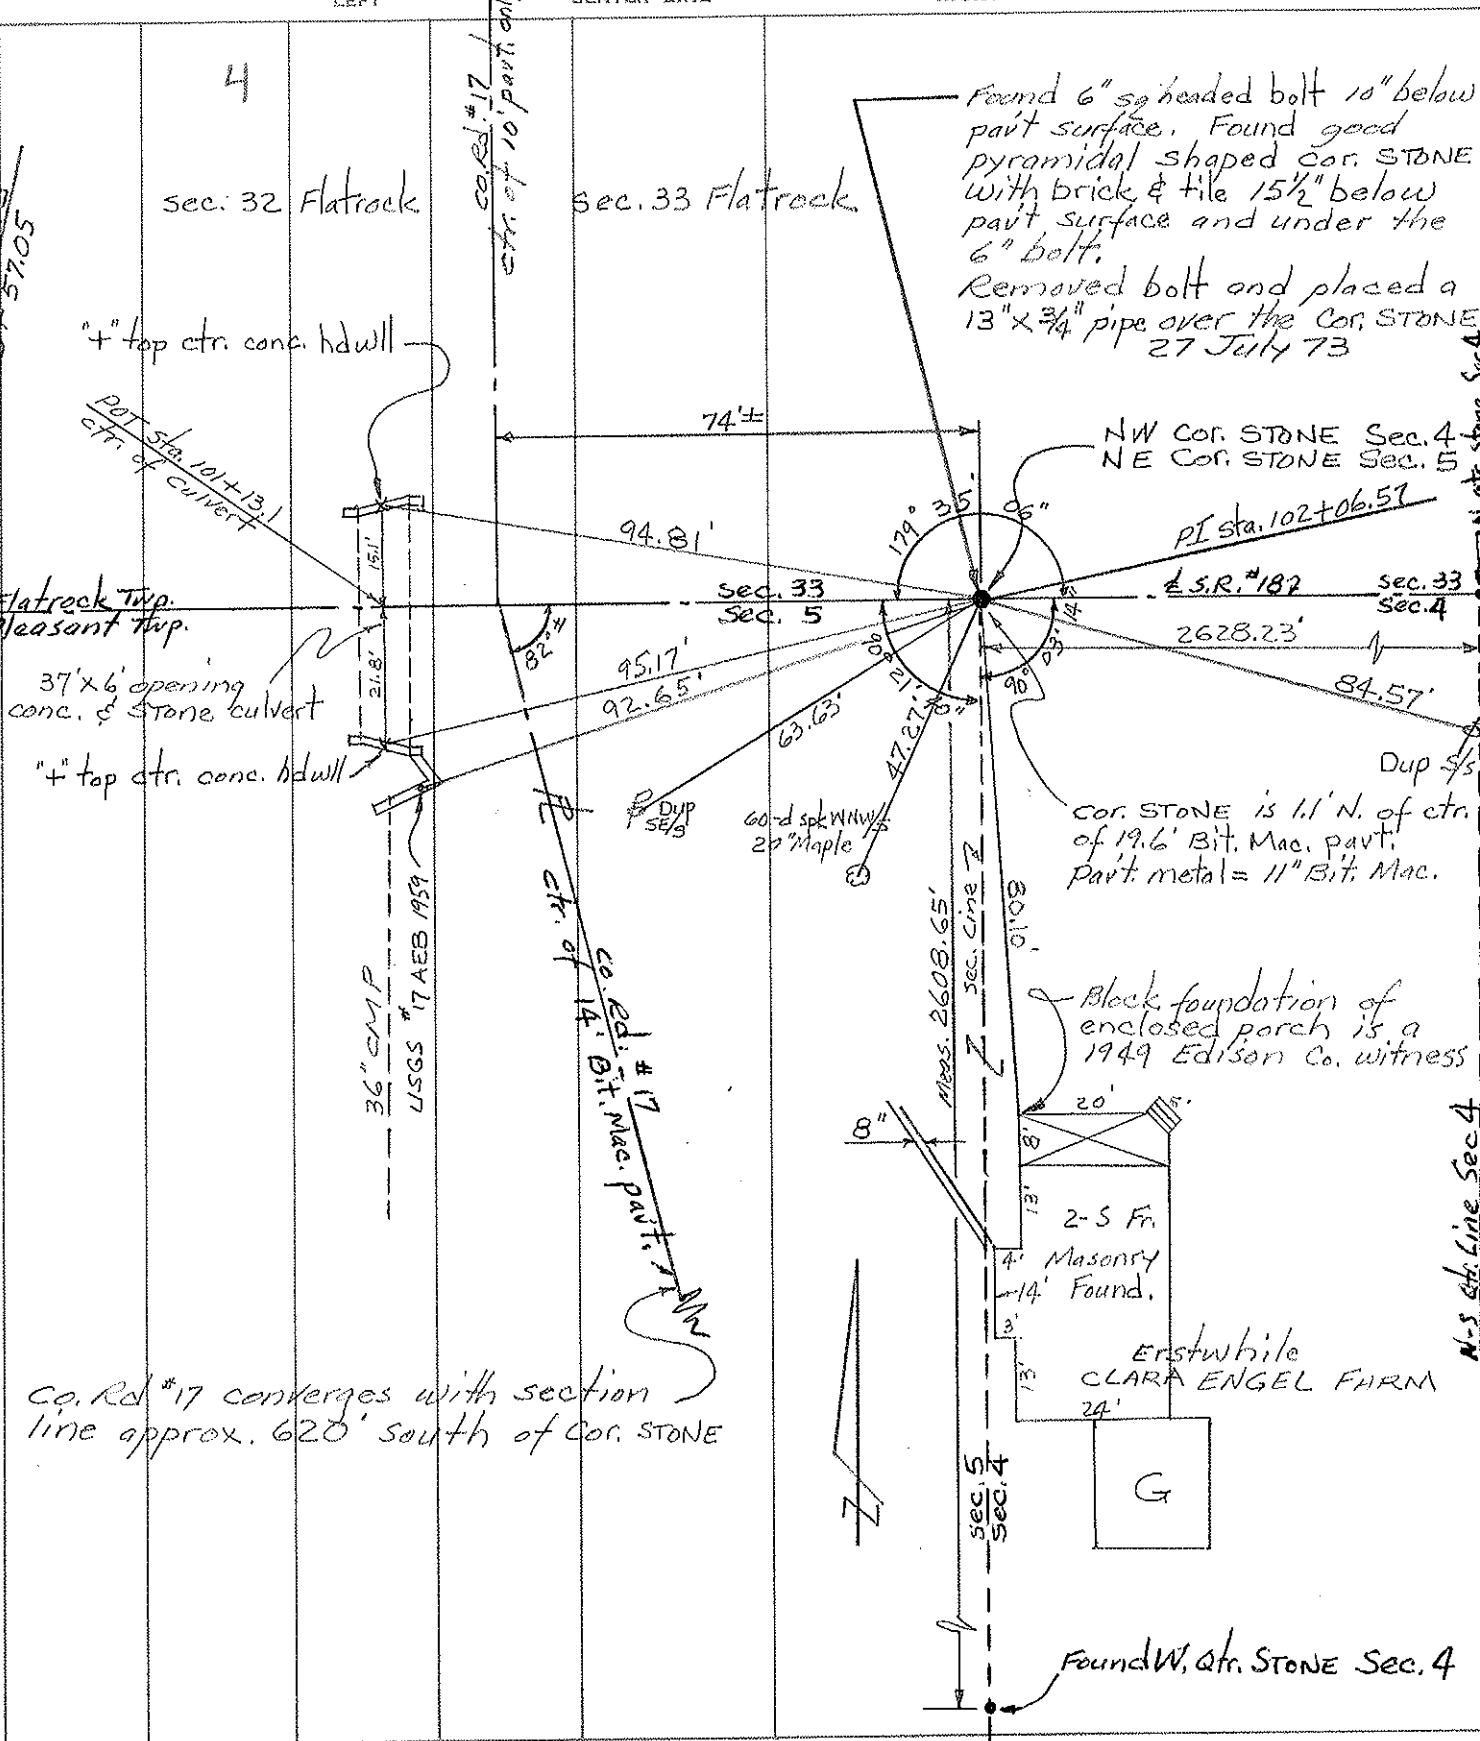 4
57.05
Co. Rd. #17
ctr. of 10' pavt. only
sec. 32 Flatrock
sec. 33 Flatrock
Found 6" sq headed bolt 10" below
pav't surface. Found good
pyramidal shaped cor. STONE
with brick & tile 15½" below
pav't surface and under the
6" bolt.
Removed bolt and placed a
13" x 3/4" pipe over the Cor. STONE
27 July 73
"+" top ctr. conc. hdwll
POT Sta. 101+13.1
ctr. of culvert
74'±
NW Cor. STONE Sec. 4
NE Cor. STONE Sec. 5
PI sta. 102+06.57
179° 35' 06"
94.81'
15.1'
21.8'
latrock Twp.
leasant Twp.
sec. 33
Sec. 5
℄ S.R. #187
sec. 33
Sec. 4
2628.23'
84.57'
Dup S/s
82°±
95.17'
92.65'
63.63'
47.27'
90° 03' 14"
37' x 6' opening
conc. & STONE culvert
"+" top ctr. conc. hdwll
Dup
SE/s
60-d spk WNW/s
20" Maple
Cor. STONE is 1.1' N. of ctr.
of 19.6' Bit. Mac. pavt.
Pav't. metal = 11" Bit. Mac.
36" CMP
USGS #17 AEB 1959
ctr. of 14' Bit. Mac. pav't.
Co. Rd. #17
Meas. 2608.65'
Sec. Line
80.10'
Block foundation of
enclosed porch is a
1949 Edison Co. witness
20'
5'
8"
8'
13'
2-S Fr.
Masonry
Found.
4'
14'
3'
13'
24'
Erstwhile
CLARA ENGEL FARM
G
N-S Qtr. Line Sec 4
Co. Rd #17 converges with section
line approx. 620' South of Cor. STONE
Z
Sec. 5
Sec. 4
Found W. Qtr. STONE Sec. 4